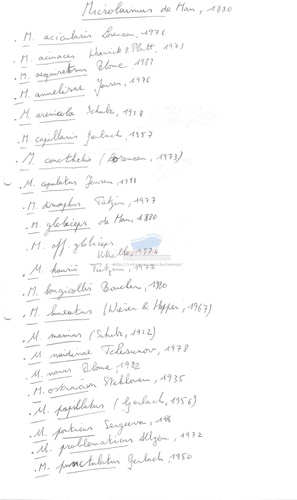 Microlaimus de Man, 1880
. M. acicularis Lorenzen, 1976
. M. acinaces Warwick & Platt, 1973
. M. Blome 1982
. M. annelisae Jensen, 1976
. M. arenicola Schulz, 1938
. M. capillaris Gerlach, 1957
. M. conothelis (Lorenzen, 1973)
M. capulatus Jensen, 1988
. M. dimorphus 1977
. M. globiceps de Man, 1880
. M. aff. globiceps
1974
. M. 1977
. M. longicollis Boucher,
. M. lineatus (Wieser & Hopper, 1967)
. M. marinus (Schulz, 1932)
. M. naidinae Tchesunov, 1978
. M. nanus Blome, 1982
. M. ostracion Stekhoven, 1935
. M. papillatus (Gerlach, 1956)
. M. ponticus Sergeeva,
. M. problematicus Allgén, 1932
. M. punctulatus Gerlach 1950